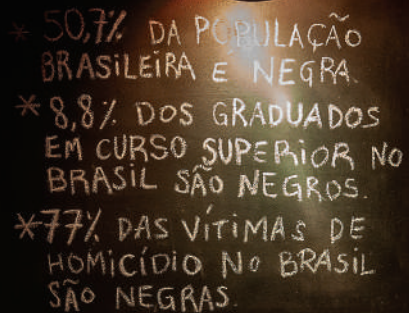 * 50,7% DA POPULAÇÃO
BRASILEIRA E NEGRA.
* 8,8% DOS GRADUADOS
EM CURSO SUPERIOR NO
BRASIL SÃO NEGROS.
* 77% DAS VÍTIMAS DE
HOMICÍDIO NO BRASIL
SÃO NEGRAS.